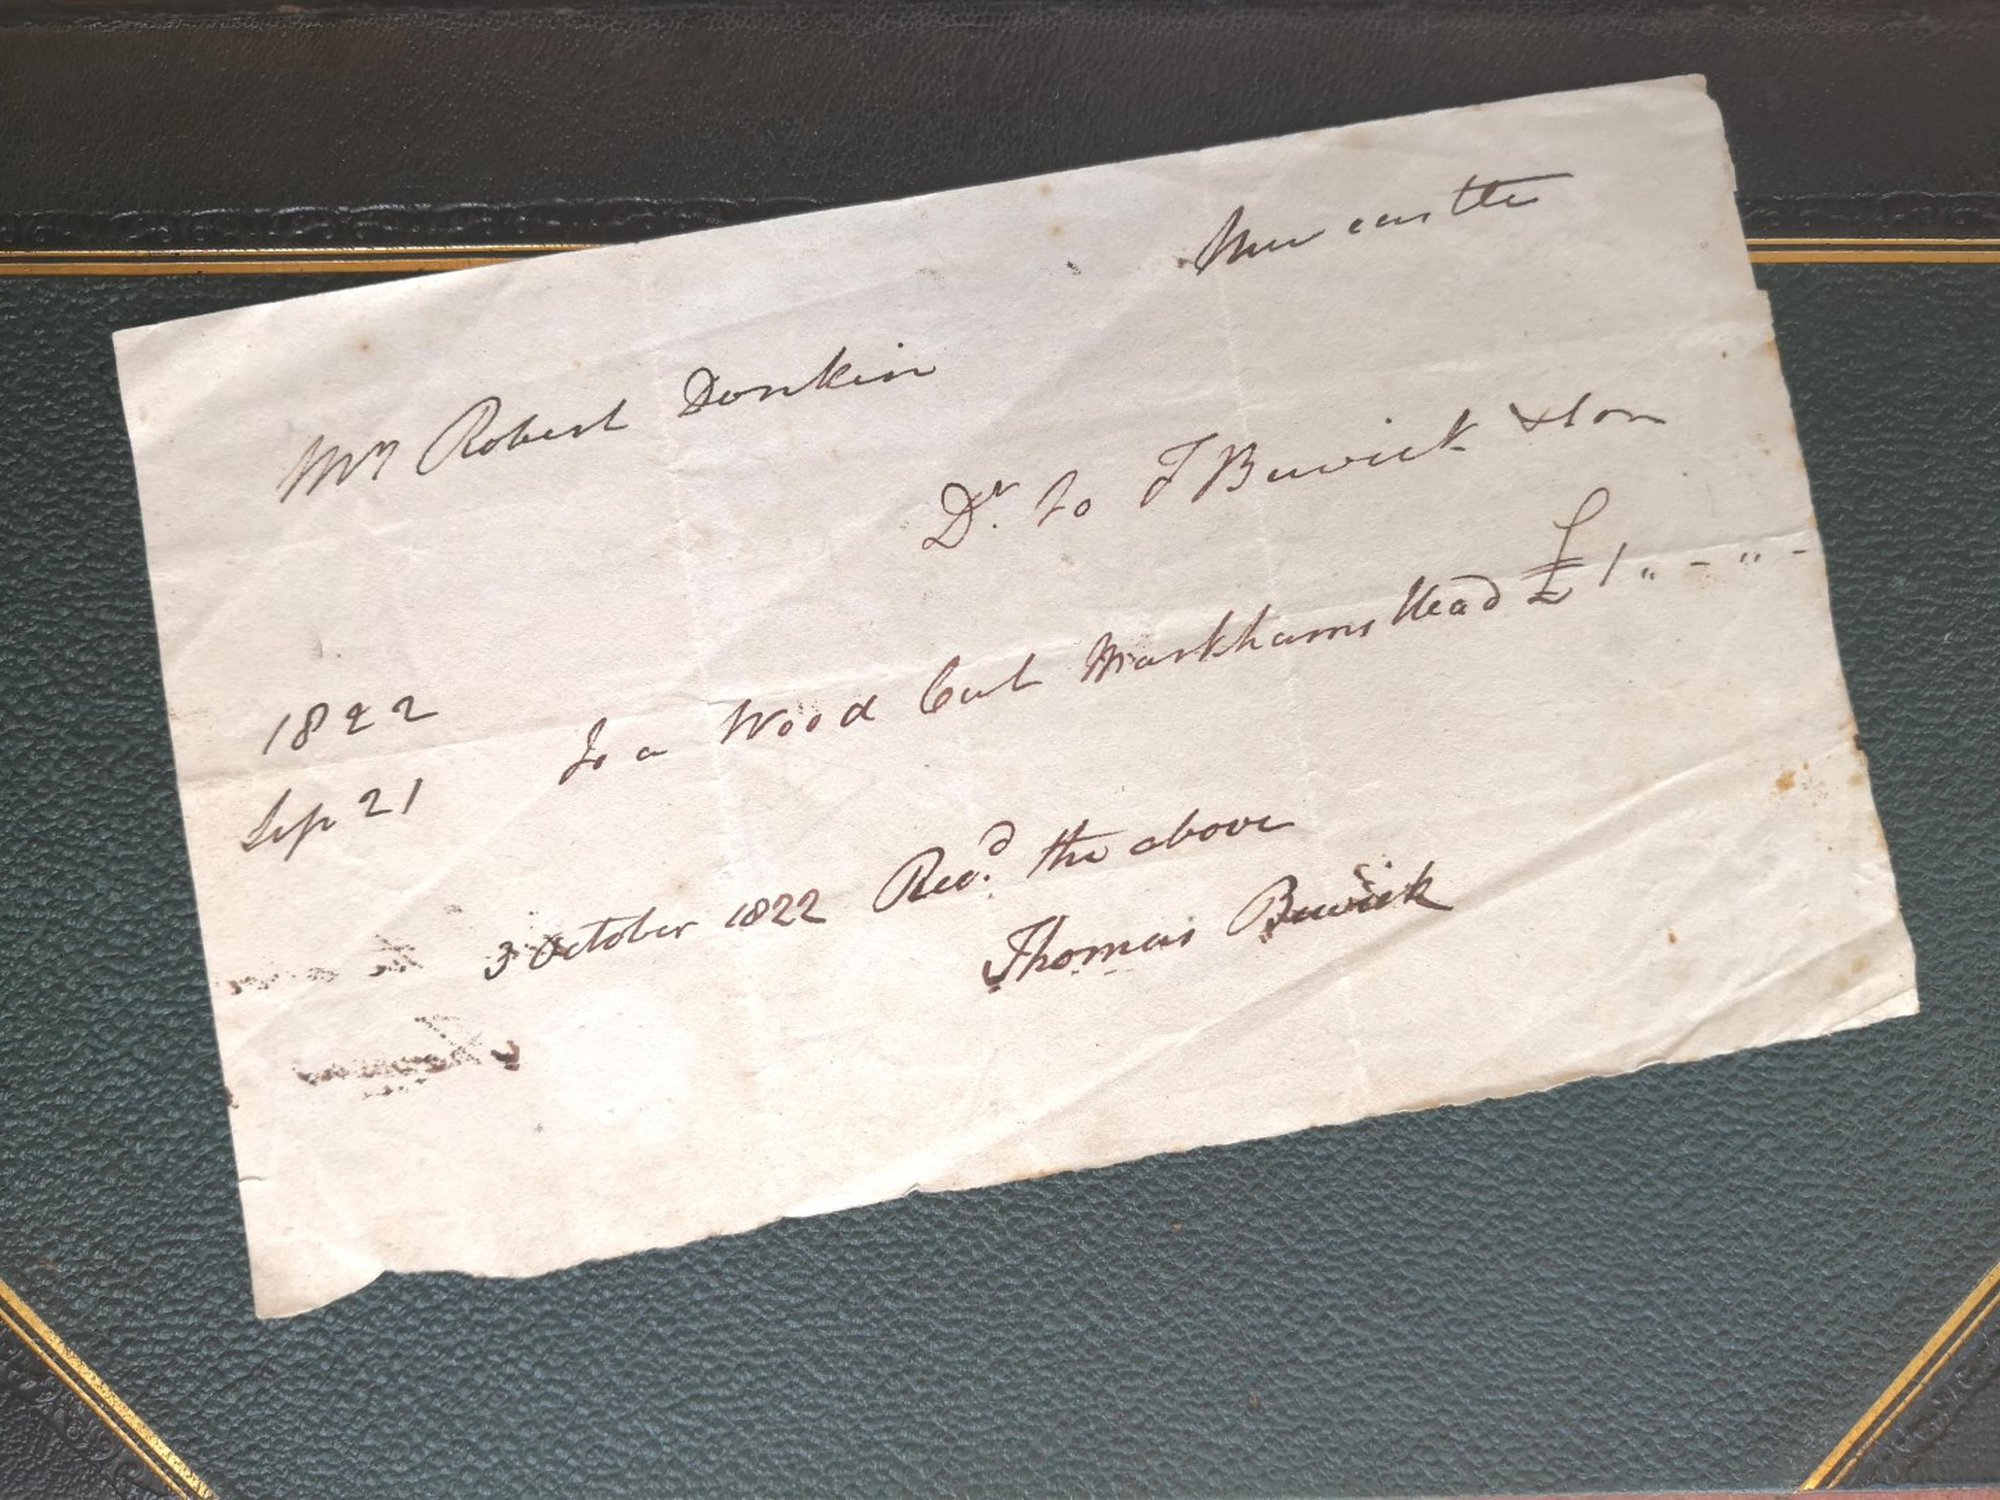 Newcastle
Mr Robert Donkin
Dr. to T Bewick & Son
1822
Sep 21 To a Wood Cut Markhams Head £1 " - " -
3 October 1822 Recd. the above
Thomas Bewick